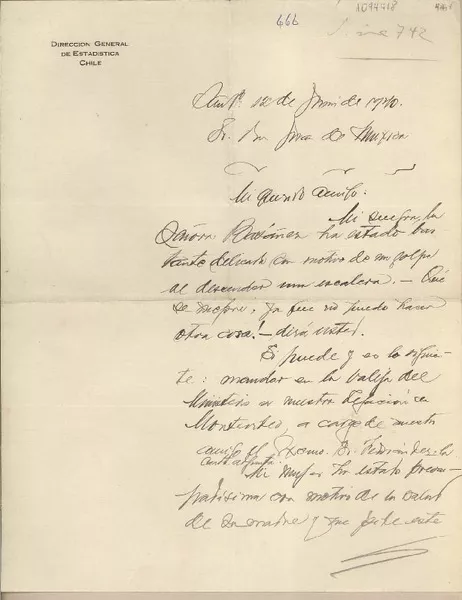 1094418
466
742
DIRECCION GENERAL
DE ESTADISTICA
CHILE
12 de Junio de 1920.
Sr. Dn
Mi querido amigo:
Mi suegra, la
señora ha estado bas
tante delicada con motivo de un golpe
al descender una escalera. — Que
se mejore, ya que no puedo hacer
otra cosa! — dirá usted.
Si puede y es lo siguien
te: mandar en la valija del
Ministerio a nuestra Legación en
Montevideo, a cargo de nuestro
amigo el Excmo. Sr. Fernández la
carta adjunta.
Mi mujer ha estado preocu-
padísima con motivo de la salud
de su madre y me pide este